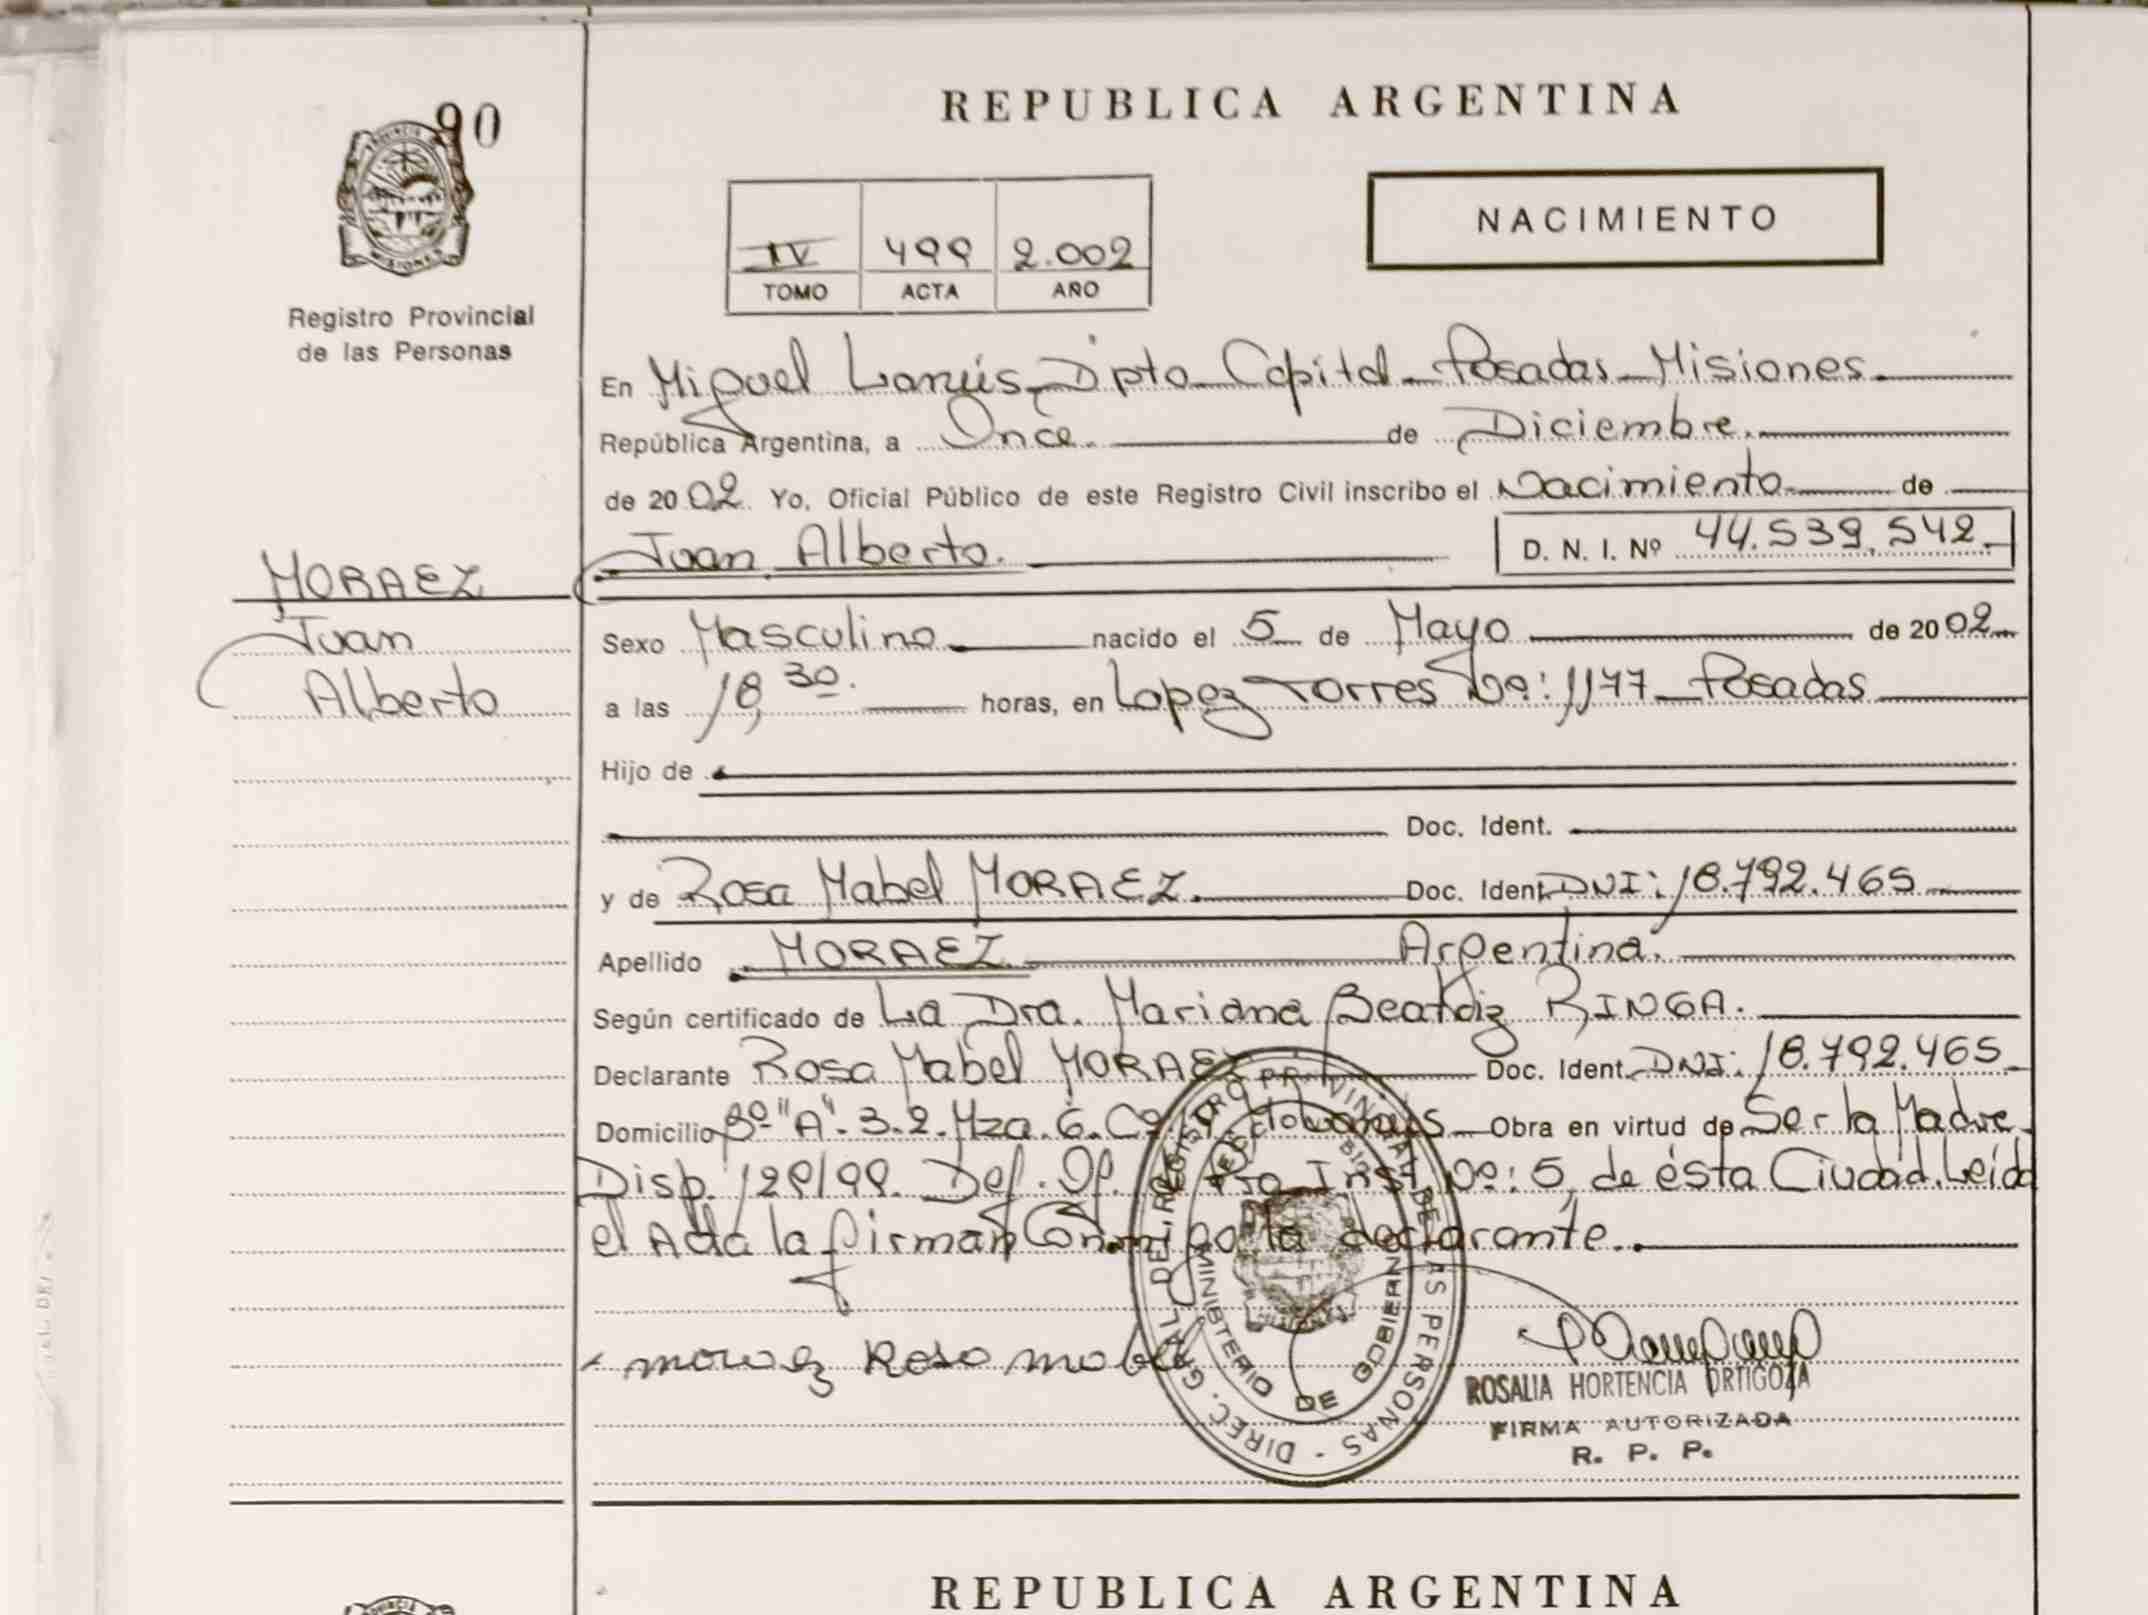 90
REPUBLICA ARGENTINA
NACIMIENTO
IV 499 2.002
TOMO ACTA AÑO
PROVINCIA MISIONES
Registro Provincial
de las Personas
En Miguel Lanús Dpto Capital Posadas Misiones
República Argentina, a Once. de Diciembre.
de 2002. Yo, Oficial Público de este Registro Civil inscribo el Nacimiento de
Juan Alberto. D. N. I. Nº 44.539.542
MORAEZ
Juan
Alberto
Sexo Masculino nacido el 5 de Mayo de 2002
a las 18,30. horas, en Lopez Torres Nº: 1177 Posadas
Hijo de
Doc. Ident.
y de Rosa Mabel MORAEZ. Doc. Ident. DNI: 18.792.465
Apellido MORAEZ Argentina.
Según certificado de La Dra. Mariana Beatriz RINGA.
Declarante Rosa Mabel MORAEZ Doc. Ident. DNI: 18.792.465
Domicilio Bº "A". 3.2. Mza. 6. Obra en virtud de Ser la Madre.
Disp. 129/99. Def. Of. Inst. Nº: 5, de ésta Ciudad. Leida
el Acta la firman Conmigo la declarante.
moraez Rosa mabel
DIREC. GRAL. DEL REGISTRO PROVINCIAL DE LAS PERSONAS
MINISTERIO DE GOBIERNO
ROSALIA HORTENCIA ORTIGOZA
FIRMA AUTORIZADA
R. P. P.
REPUBLICA ARGENTINA